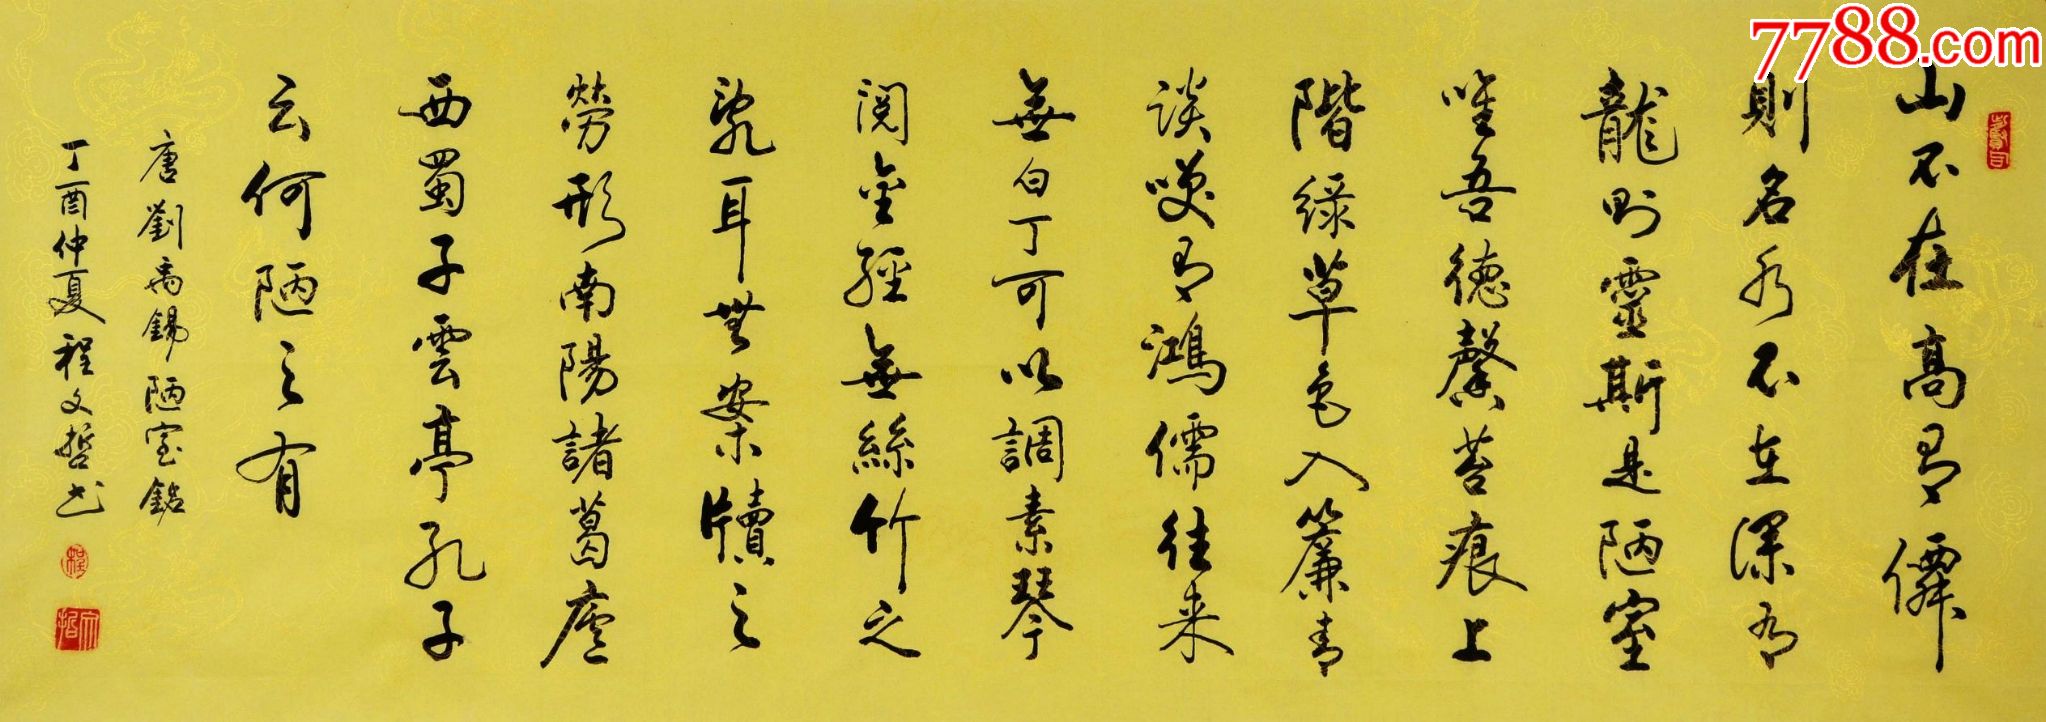 7788.com
山不在高有僊
則名水不在深有
龍則靈斯是陋室
唯吾德馨苔痕上
階綠草色入簾青
談咲有鴻儒往来
無白丁可以調素琴
閱金經無絲竹之
亂耳無案牘之
勞形南陽諸葛廬
西蜀子雲亭孔子
云何陋之有
唐劉禹錫陋室銘
丁酉仲夏程文哲书
程
文哲